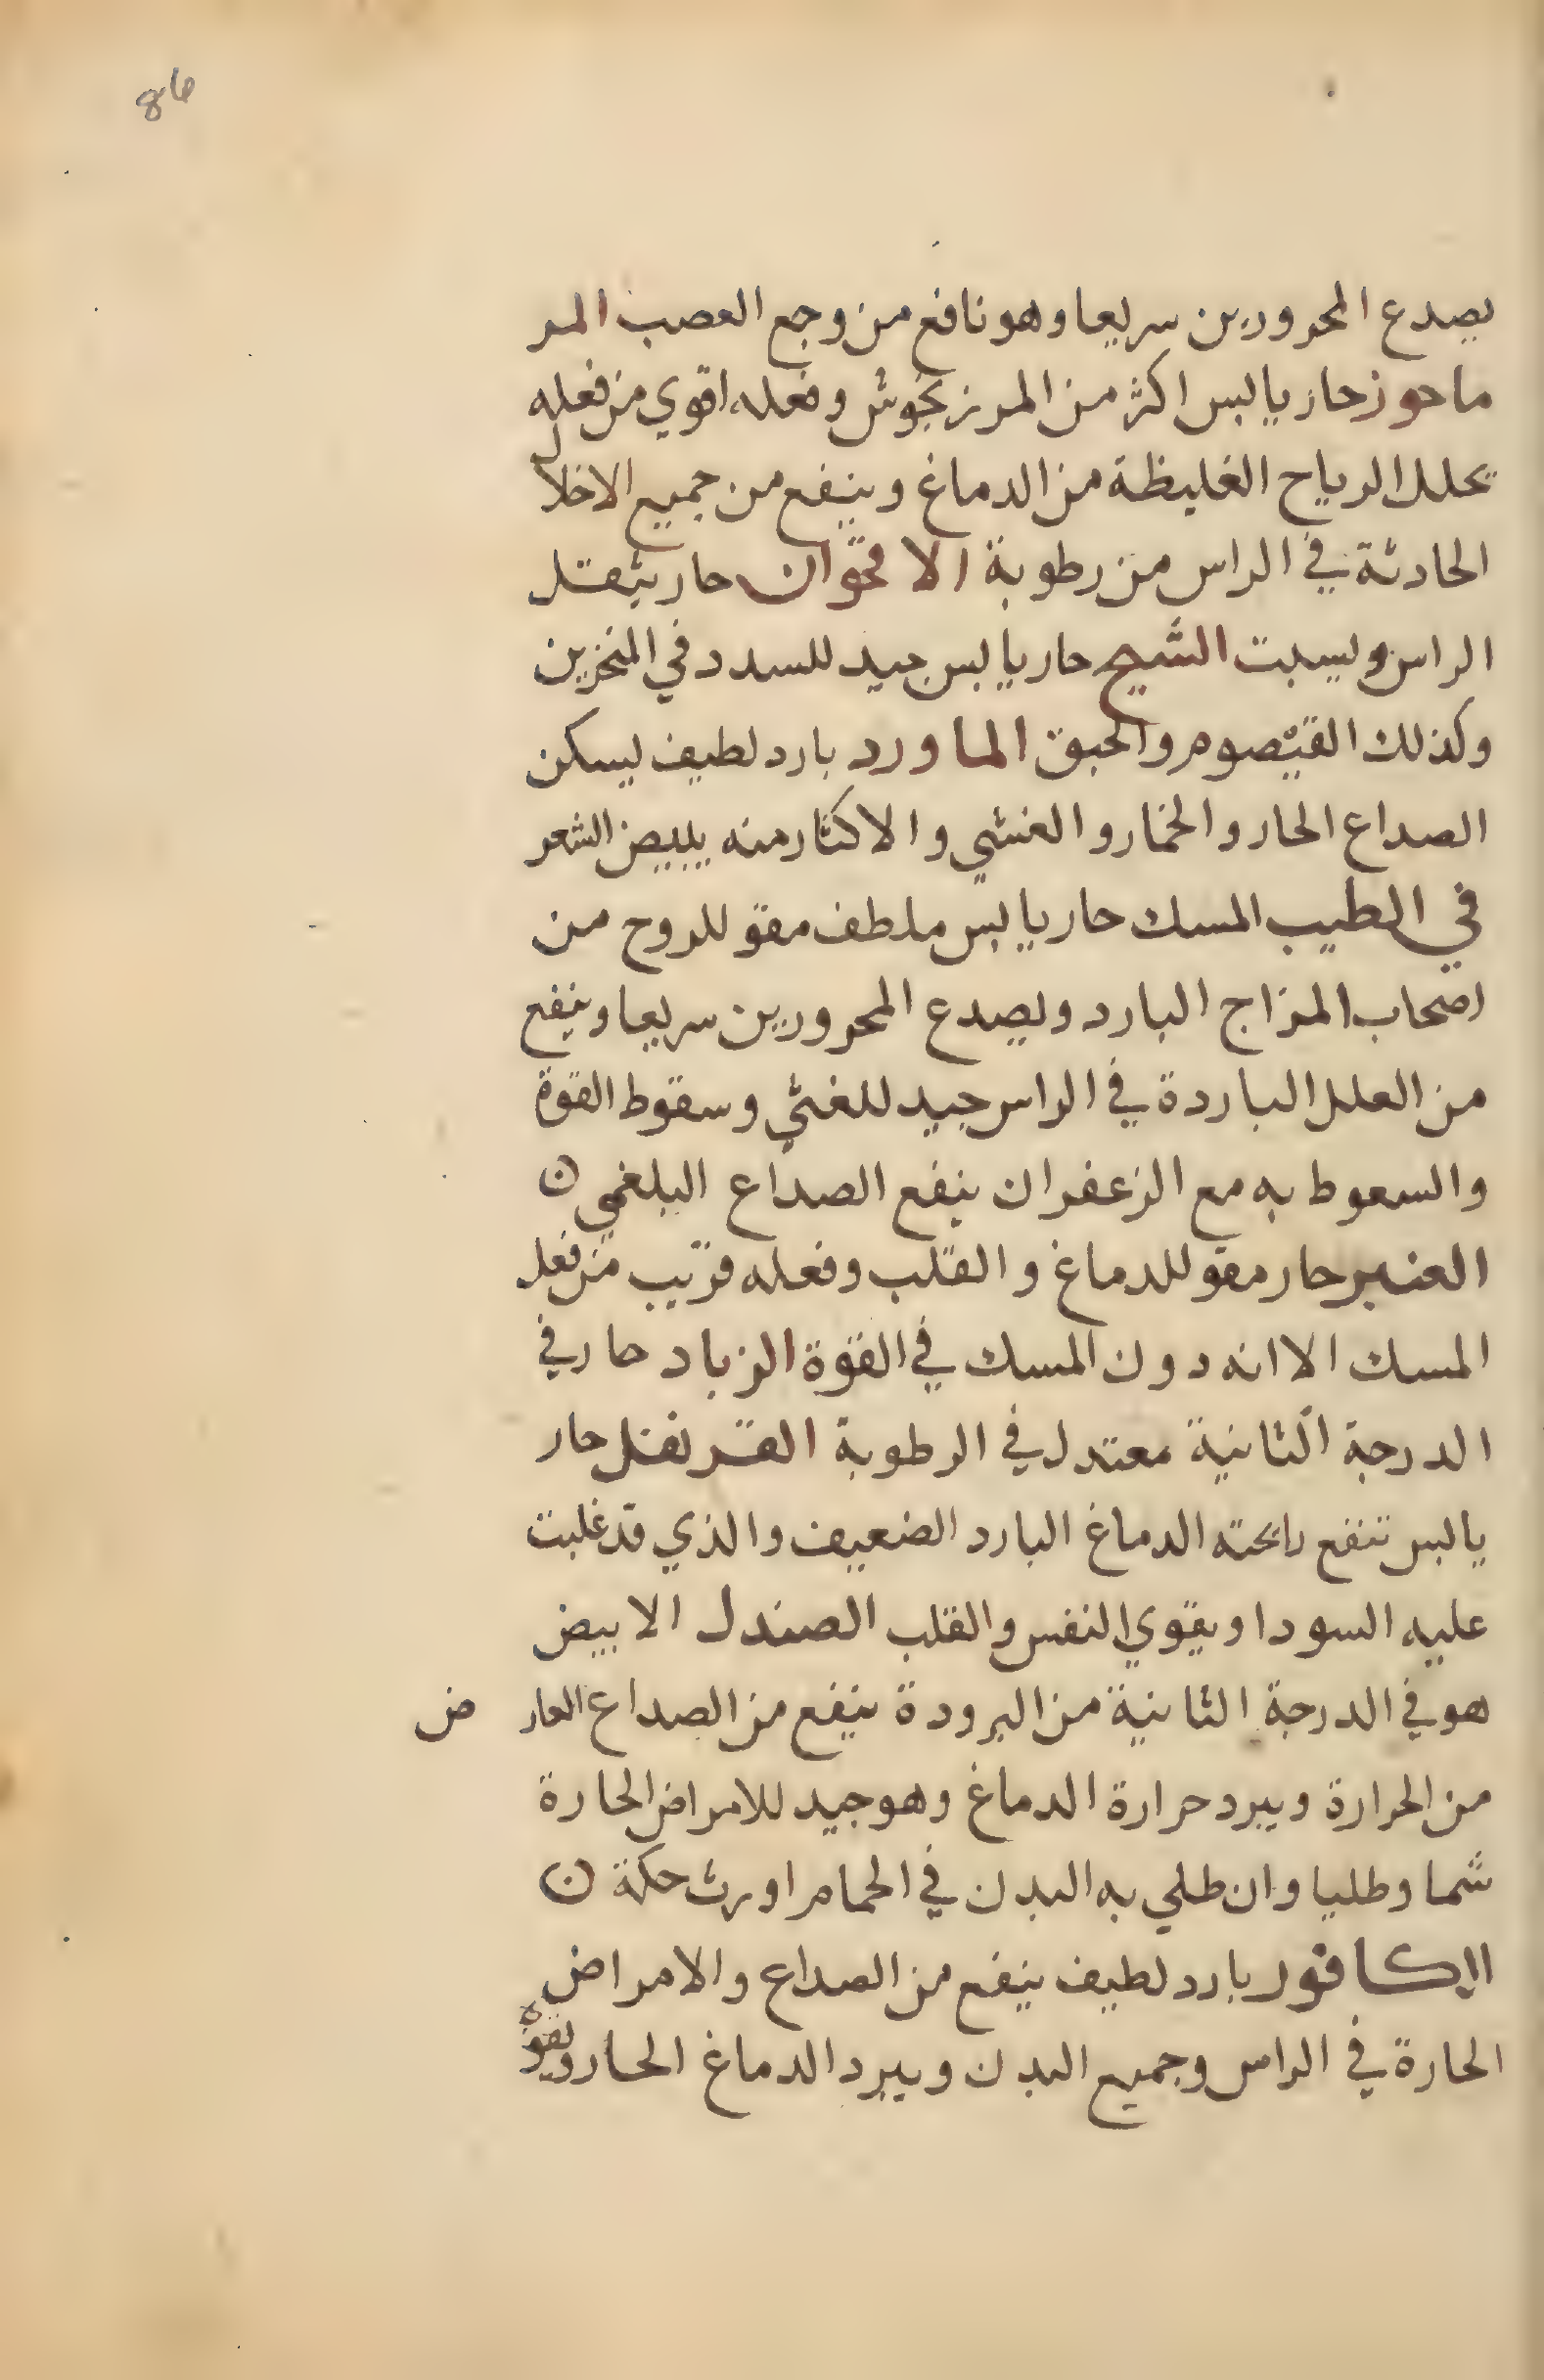 86
يصدع المحرورين سريعا وهو نافع من وجع العصب المر
ماحوز حار يابس اكثر من المرزنجوش وفعله اقوي من فعله
يحلل الرياح الغليظة من الدماغ وينفع من جميع الاخلال
الحادثة في الراس من رطوبة الاقحوان حار يثقل
الراس ويسبت الشيح حار يابس جيد للسدد في المنخرين
وكذلك القيصوم والحبق الماورد بارد لطيف يسكن
الصداع الحار والخمار والغشي والاكثار منه يبيض الشعر
في الطيب المسك حار يابس ملطف مقو للروح من
اصحاب المزاج البارد ويصدع المحرورين سريعا وينفع
من العلل الباردة في الراس جيد للغشي وسقوط القوة
والسعوط به مع الزعفران ينفع الصداع البلغمي ن
العنبر حار مقو للدماغ والقلب وفعله قريب من فعل
المسك الا انه دون المسك في القوة الزباد حار في
الدرجة الثانية معتدل في الرطوبة القرنفل حار
يابس تنفع رايحته الدماغ البارد الضعيف والذي قد غلبت
عليه السودا ويقوي النفس والقلب الصندل الابيض
هو في الدرجة الثانية من البرودة ينفع من الصداع العارض
من الحرارة ويبرد حرارة الدماغ وهو جيد للامراض الحارة
شما وطليا وان طلي به البدن في الحمام اورث حكة ن
الكافور بارد لطيف ينفع من الصداع والامراض
الحارة في الراس وجميع البدن ويبرد الدماغ الحار ويقويه